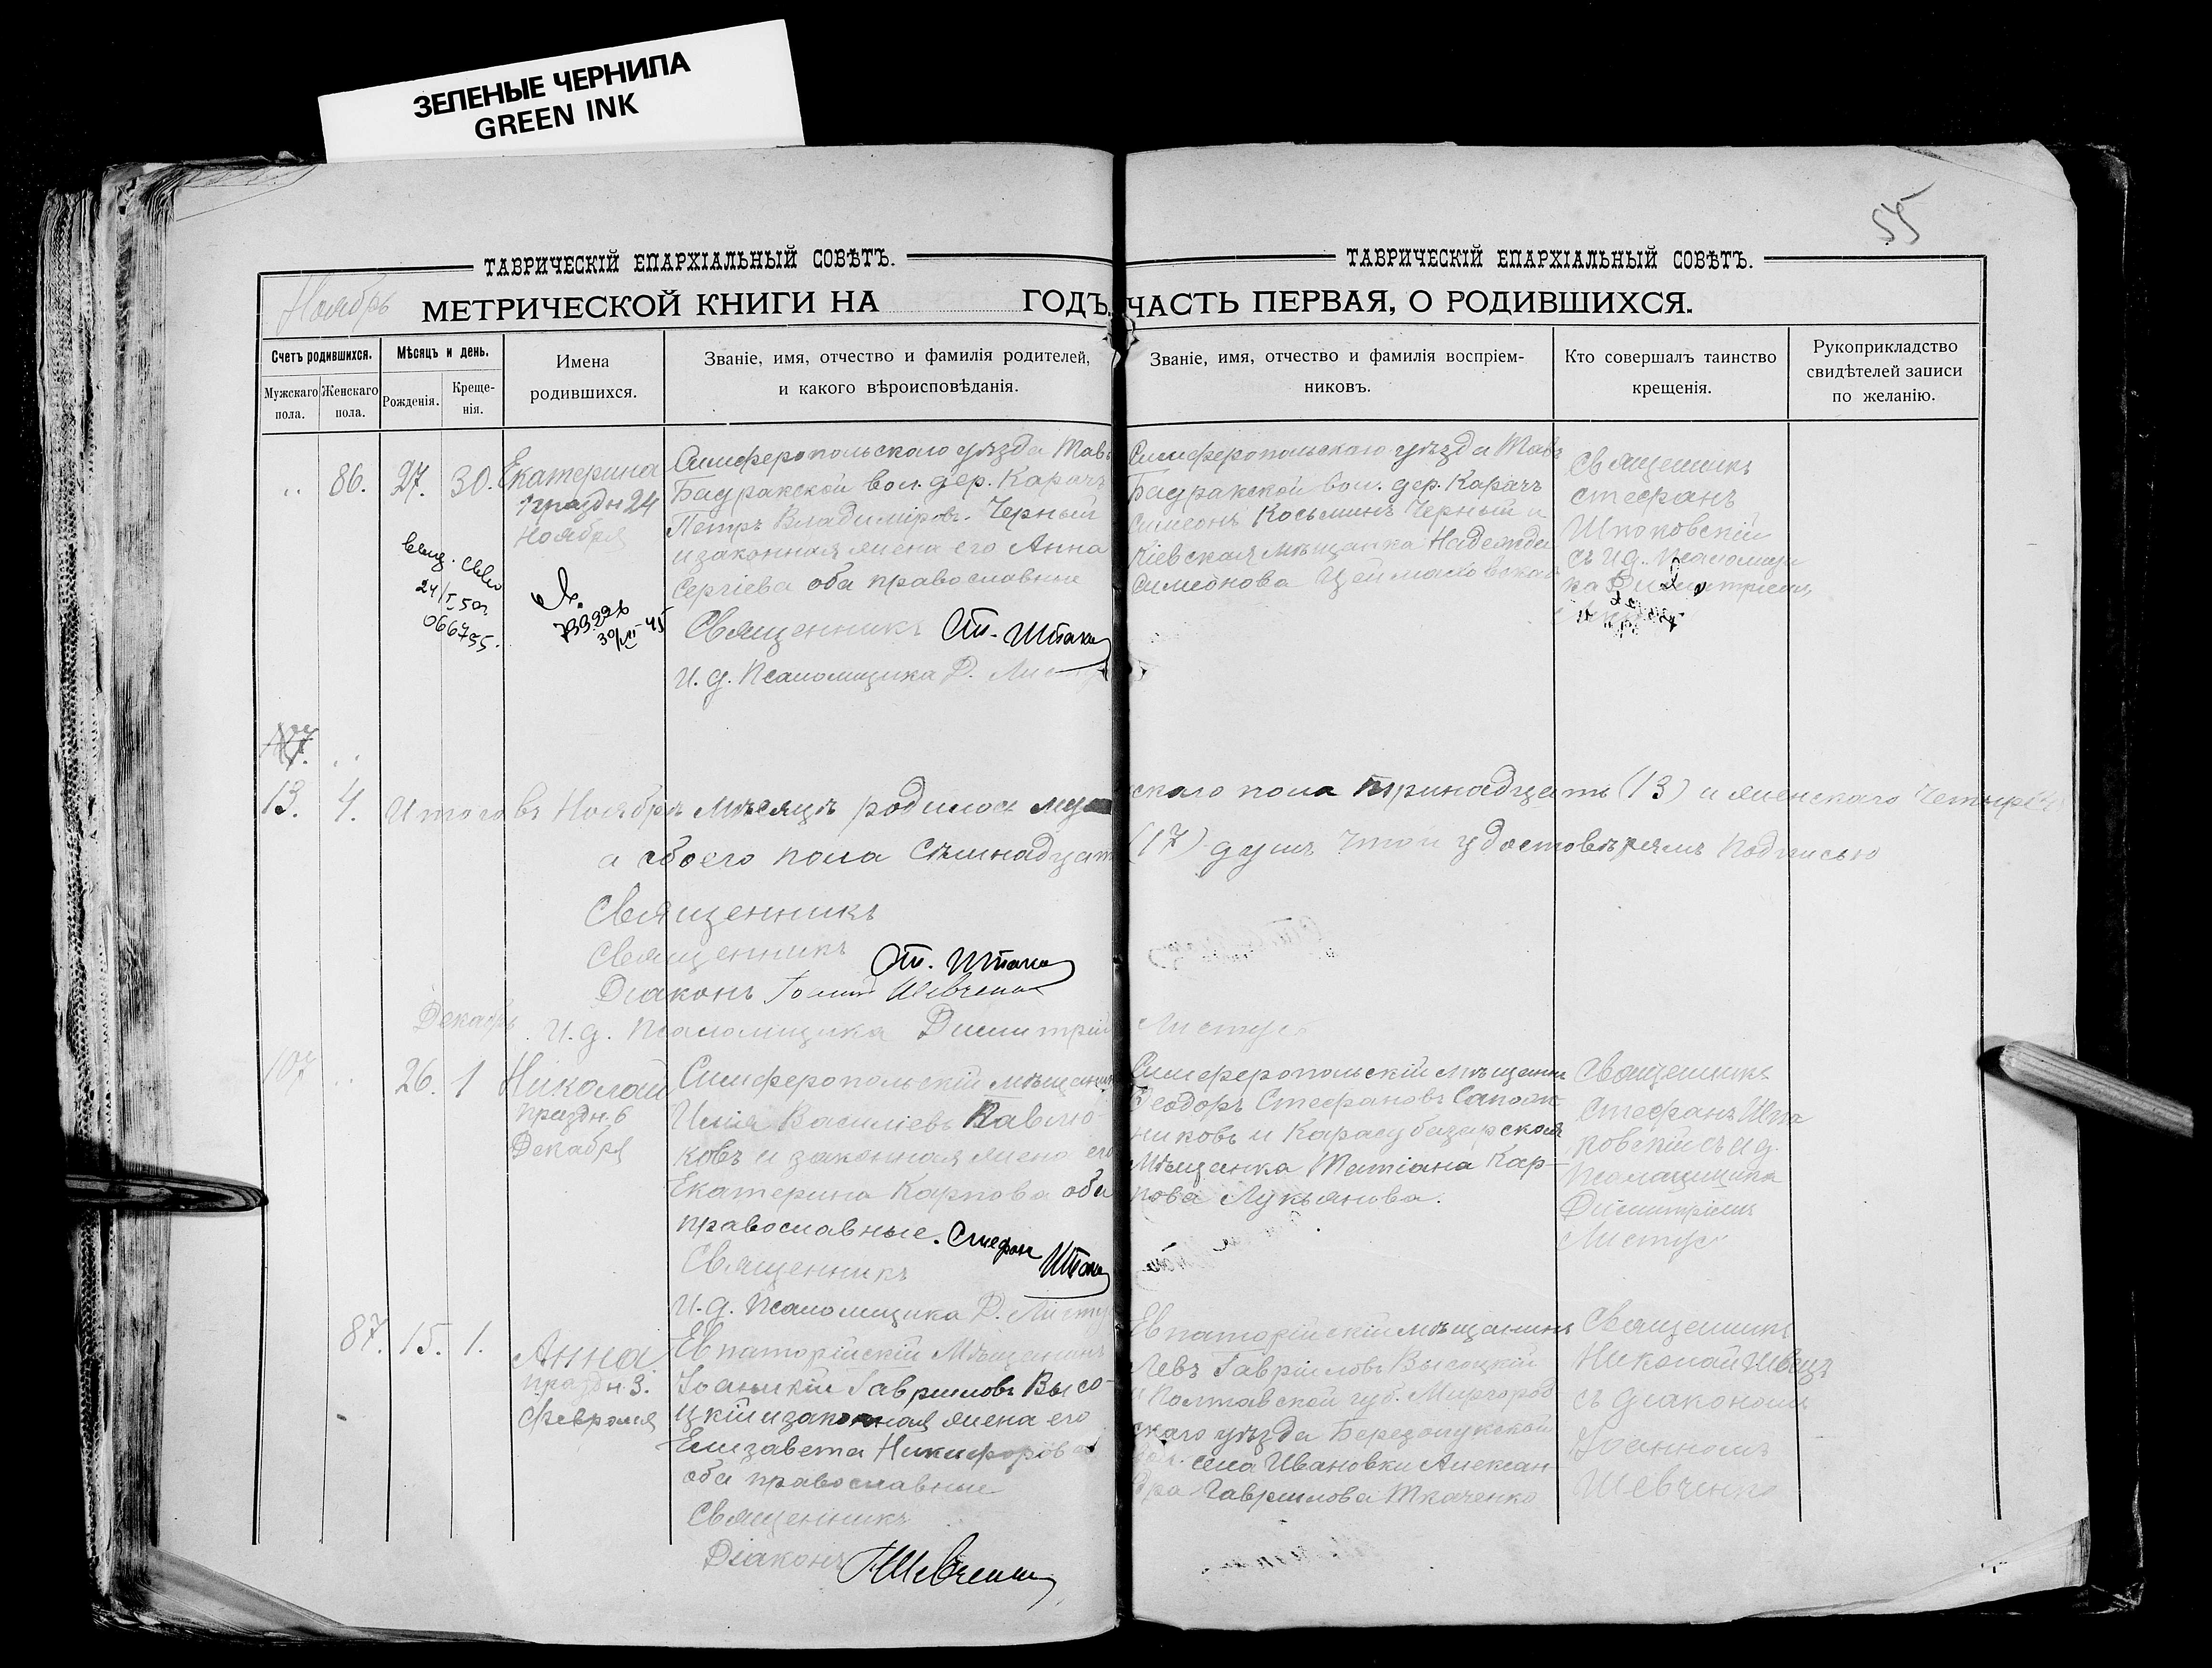 ЗЕЛЕНЫЕ ЧЕРНИЛА
GREEN INK
55
ТАВРИЧЕСКІЙ ЕПАРХІАЛЬНЫЙ СОВѢТЪ.
ТАВРИЧЕСКІЙ ЕПАРХІАЛЬНЫЙ СОВѢТЪ.
Ноябрь
МЕТРИЧЕСКОЙ КНИГИ НА ГОДЪ, ЧАСТЬ ПЕРВАЯ, О РОДИВШИХСЯ.
Счетъ родившихся.
Мужскаго пола.
Женскаго пола.
Мѣсяцъ и день.
Рожденія.
Креще-
нія.
Имена
родившихся.
Званіе, имя, отчество и фамилія родителей,
и какого вѣроисповѣданія.
Званіе, имя, отчество и фамилія воспріем-
никовъ.
Кто совершалъ таинство
крещенія.
Рукоприкладство
свидѣтелей записи
по желанію.
86. 27. 30.
Екатерина
праздн 24
Ноября
24/I 50г
066795.
Симферопольскаго уѣзда Тав
Бадракской вол. дер. Карачъ
Петръ Владиміровъ Черный
и законная жена его Анна
Сергіева оба православные
Священникъ Ст. Шпак
И. д. Псаломщика Д. Лист
Симферопольскаго уѣзда Тав
Бадракской вол. дер. Карачъ
Симеонъ Косьминъ Черный и
Кіевская мѣщанка Надежда
Симеонова
Священникъ
Стефанъ
Шпаковскій
съ и д. Псаломщи
ка Димитріемъ
107.
13. 4. Итого въ Ноябрѣ мѣсяцѣ родилось муж
скаго пола тринадцать (13) и женскаго четыре
а обоего пола семнадцат
(17) душъ что и удостовѣряемъ подписью
Священникъ
Священникъ Ст. Шпак
Діаконъ Іоаннъ Шевченко
Декабрь
И. д. Псаломщика Димитрій
Листус
107 26. 1
Николай
Праздн. 6
Декабря
Симферопольскій мѣщанин
Илія Василіевъ Павлю-
ковъ и законная жена его
Екатерина Карпова оба
православные. Стефан Шпак
Священникъ
И. д. Псаломщика Д. Листу
Симферопольскій мѣщанин
Ѳеодоръ Стефановъ Сапож-
никовъ и Карасубазарская
Мѣщанка Татіана Кар-
пова Лукьянова.
Священникъ
Стефанъ Шпа
ковскій съ и д.
Псаломщика
Димитріемъ
Листус
87. 15. 1.
Анна
праздн. 3.
Февраля
Евпаторійскій Мѣщанинъ
Іоанникій Гавриловъ Высо-
цкій и законная жена его
Елизавета Никифорова
оба православные
Священникъ
Діаконъ І Шевченко
Евпаторійскій мѣщанинъ
Левъ Гавріиловъ Высоцкій
и Полтавской губ. Миргород
скаго уѣзда
села Ивановки Алексан-
дра Гаврилова Ткаченко
Священникъ
Николай Швецъ
съ діакономъ
Іоанномъ
Шевченко